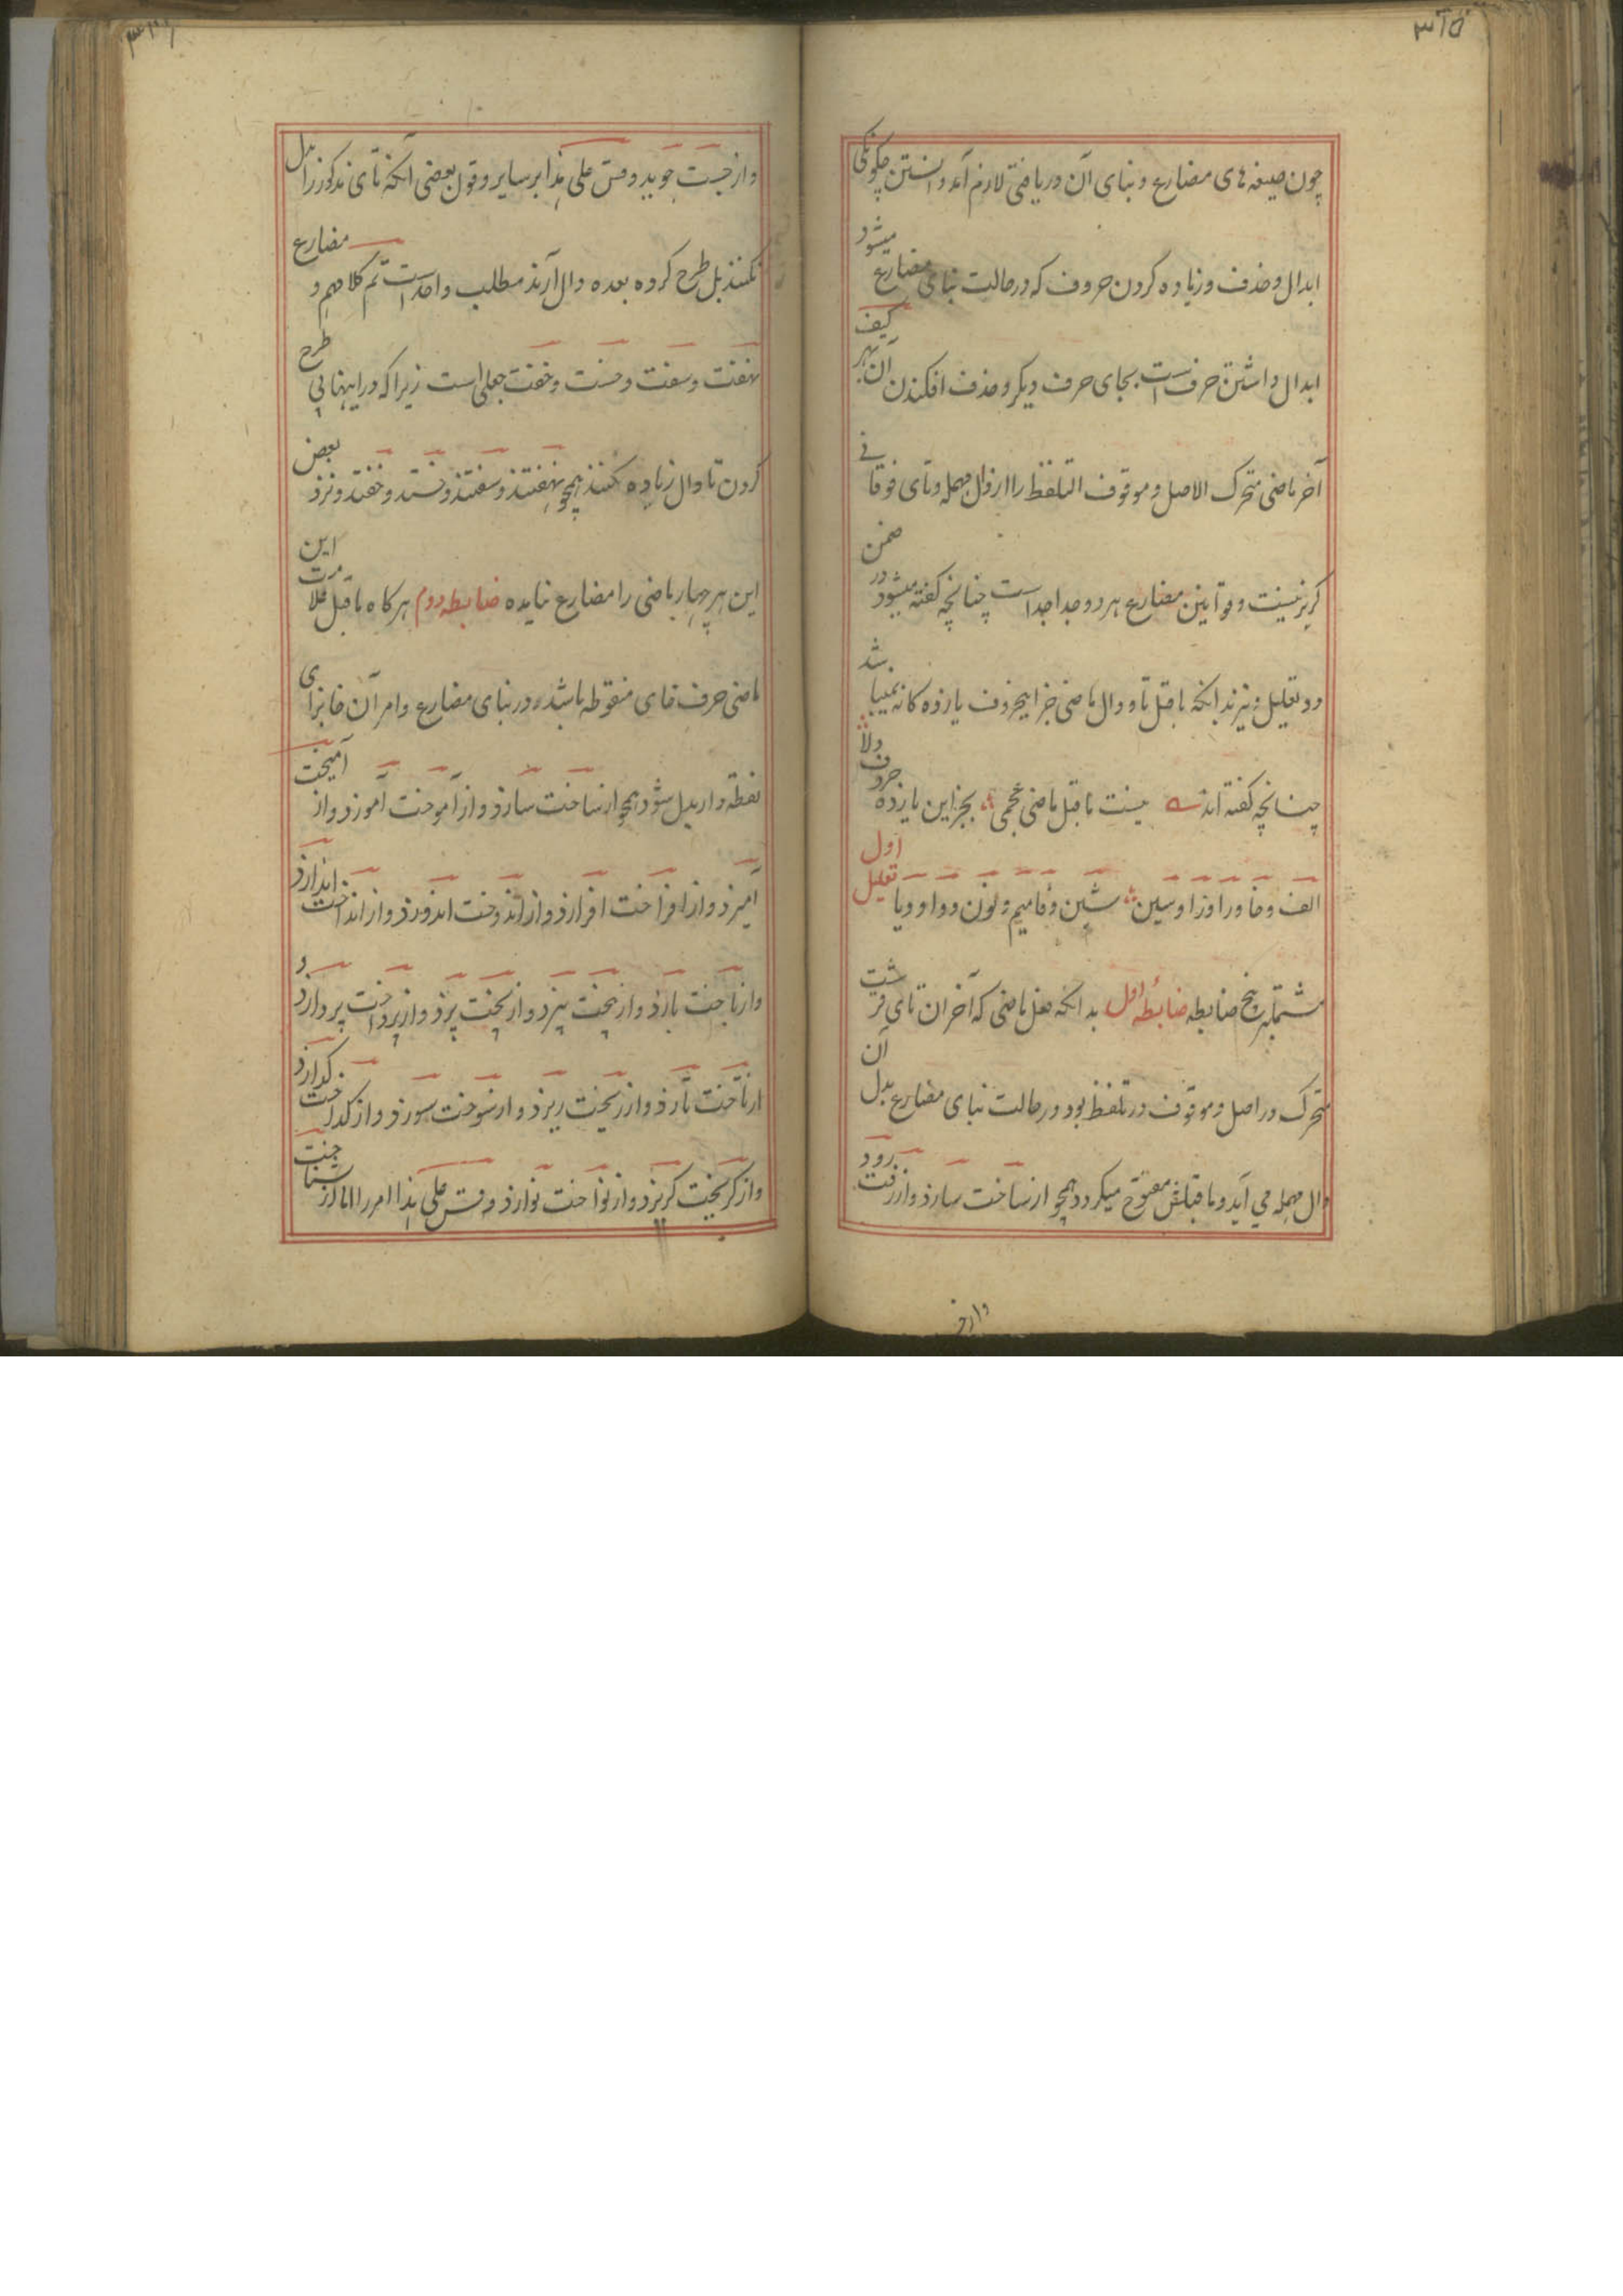 ۳۲۵
چون صیغه های مضارع و بنای آن دریافتی لازم آمد دانستن چکونکی
ابدال و حذف و زیاده کردن حروف که در حالت بنای مضارع میشود
ابدال داشتن حرف است بجای حرف دیکر و حذف افکندن آن بهر کیف
آخر ماضی متحرک الاصل و موقوف التلفظ را از دال مهمله و تای فوقانی
کریز نیست و قوانین مضارع هر دو جدا جداست چنانچه کفته میشود در ضمن
دو تعلیل و نیز بدانکه ماقبل تا و دال ماضی جز این حروف یازده کانه نمیباشد
چنانچه کفته اند نیست ماقبل ماضی عجمی بجز این یازده حروف ولا
الف و خا و را و زا و سین شین و فا میم و نون و واو و یا تعلیل اول
مشتملبر پنج ضابطه ضابطه اول بدانکه فعل ماضی که آخر ان تای قرشت
متحرک در اصل و موقوف در تلفظ بود در حالت بنای مضارع بدل آن
دال مهمله می آید و ماقبلش مفتوح میکردد همچو از ساخت سازد و از رفت رود
و از جست جوید و قس علی هذا بر سایر و قول بعضی آنکه تای مذکور را بدل
نکنند بل طرح کرده بعده دال آرند مطلب واحد است تم کلامهم و مضارع
نهفت و سفت و خست و خفت جعلی است زیرا که در اینها بی طرح
کردن تا دال زیاده کنند همچو نهفتد و سفتد و خستد و خفتد و نزد بعض
این هر چهار ماضی را مضارع نیامده ضابطه دوم هر کاه ماقبل علامت این
ماضی حرف خای منقوطه باشد در بنای مضارع و امر آن خا بزای
نقطه دار بدل شود همچو از ساخت سازد و از آموخت آموزد و از آمیخت
آمیزد و از افراخت افرازد و از اندوخت اندوزد و از انداخت اندازد
و از باخت بازد و از بیخت بیزد و از پخت پزد و از پرداخت پردازد و
از تاخت تازد و از ریخت ریزد و از سوخت سوزد و از کداخت کدازد
و از کریخت کریزد و از نواخت نوازد و قس علی هذا امر را اما از شناخت